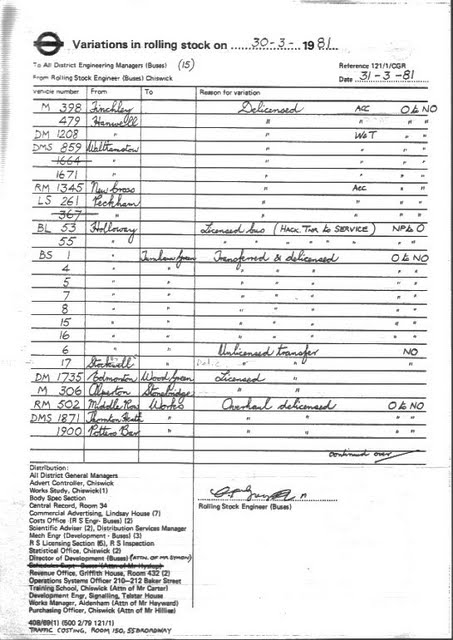 Variations in rolling stock on 30-3-1981
To All District Engineering Managers (Buses) (15)
Reference 121/1/CGR
From Rolling Stock Engineer (Buses) Chiswick
Date 31-3-81
Vehicle number From To Reason for variation
M 398 Finchley Delicensed Acc O to NO
479 Hanwell " " " "
DM 1208 " " W&T " "
DMS 859 Walthamstow " " "
1664 "
1671 " " " "
RM 1345 New Cross " Acc " "
LS 261 Peckham " " " "
367 "
BL 53 Holloway Licensed bus (Hack Trn to SERVICE) NP to O
55 " " " " " " " "
BS 1 " Turnham Green Transferred & delicensed O to NO
4 " " " " " "
5 " " " " " "
7 " " " " " "
8 " " " " " "
15 " " " " " "
16 " " " " " "
6 " " Unlicensed transfer NO
17 Stockwell " " " "
DM 1735 Edmonton Wood Green Licensed "
M 306 Alperton Stonebridge " "
RM 502 Middle Row Works Overhaul delicensed O to NO
DMS 1871 Thornton Heath " " " " "
1900 Potters Bar " " " " "
continued over
Distribution:
All District General Managers
Advert Controller, Chiswick
Works Study, Chiswick (1)
Body Spec Section
Central Record, Room 34
Commercial Advertising, Lindsay House (7)
Costs Office (R S Engr- Buses) (2)
Scientific Adviser (2), Distribution Services Manager
Mech Engr (Development - Buses) (3)
R S Licensing Section (6), R S Inspection
Statistical Office, Chiswick (2)
Director of Development (Buses) (ATTN. OF MR. SYMON)
Schedules Supt - Buses (Attn of Mr Hyslop)
Revenue Office, Griffith House, Room 432 (2)
Operations Systems Officer 210-212 Baker Street
Training School, Chiswick (Attn of Mr Carter)
Development Engr, Signalling, Telstar House
Works Manager, Aldenham (Attn of Mr Hayward)
Purchasing Officer, Chiswick (Attn of Mr Hillias)
Rolling Stock Engineer (Buses)
408/89(1) (500 2/79 121/1)
TRAFFIC COSTING, ROOM 150, 55 BROADWAY